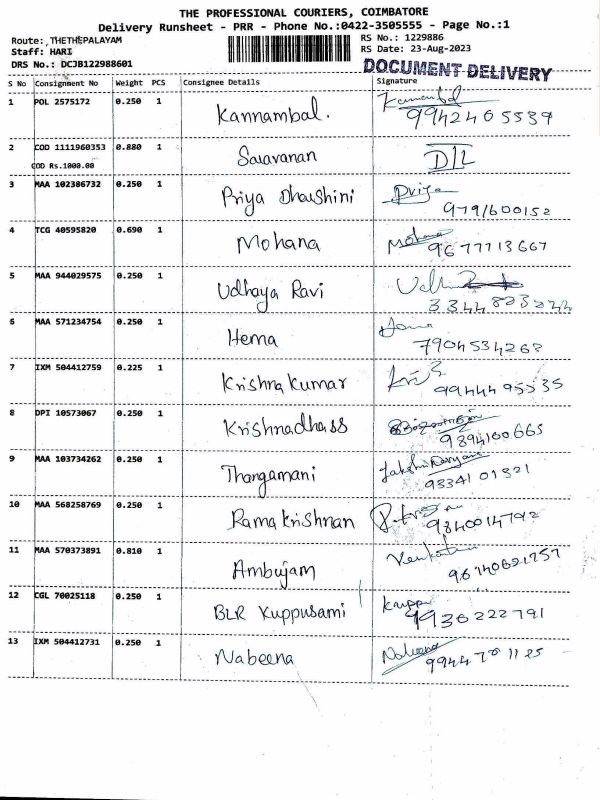 THE PROFESSIONAL COURIERS, COIMBATORE
Delivery Runsheet - PRR - Phone No.:0422-3505555 - Page No.:1
Route: THETHEPALAYAM
RS No.: 1229886
Staff: HARI
RS Date: 23-Aug-2023
DRS No.: DCJB122988601
DOCUMENT DELIVERY
S No Consignment No Weight PCS Consignee Details Signature
1 POL 2575172 0.250 1 Kannambal.
9942405539
2 COD 1111960353 0.880 1 Saravanan
COD Rs.1000.00
3 MAA 102386732 0.250 1 Priya Dharshini Priya
9791600152
4 TCG 40595820 0.690 1 Mohana Mohana
9677713667
5 MAA 944029575 0.250 1 Udhaya Ravi
6 MAA 571234754 0.250 1 Hema
7904534268
7 IXM 504412759 0.225 1 Krishna Kumar
9944495535
8 DPI 10573067 0.250 1 Krishnadhass
9894100665
9 MAA 103734262 0.250 1 Thangamani
10 MAA 568258769 0.250 1 Rama Krishnan
9840014792
11 MAA 570373891 0.810 1 Ambujam
12 CGL 70025118 0.250 1 BLR Kuppusami
9936222791
13 IXM 504412731 0.250 1 Nabeena Nabeena